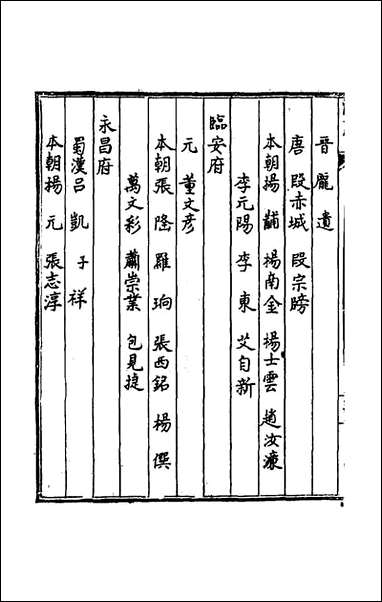 晉 龎 遺
唐 段赤城 段宗牓
本朝楊 黼 楊南金 楊士雲 趙汝濂
李元陽 李 東 艾自新
臨安府
元 董文彥
本朝張 隆 羅 珦 張西銘 楊 僎
萬文彩 蕭崇業 包見捷
永昌府
蜀漢呂 凱 子 祥
本朝楊 元 張志淳